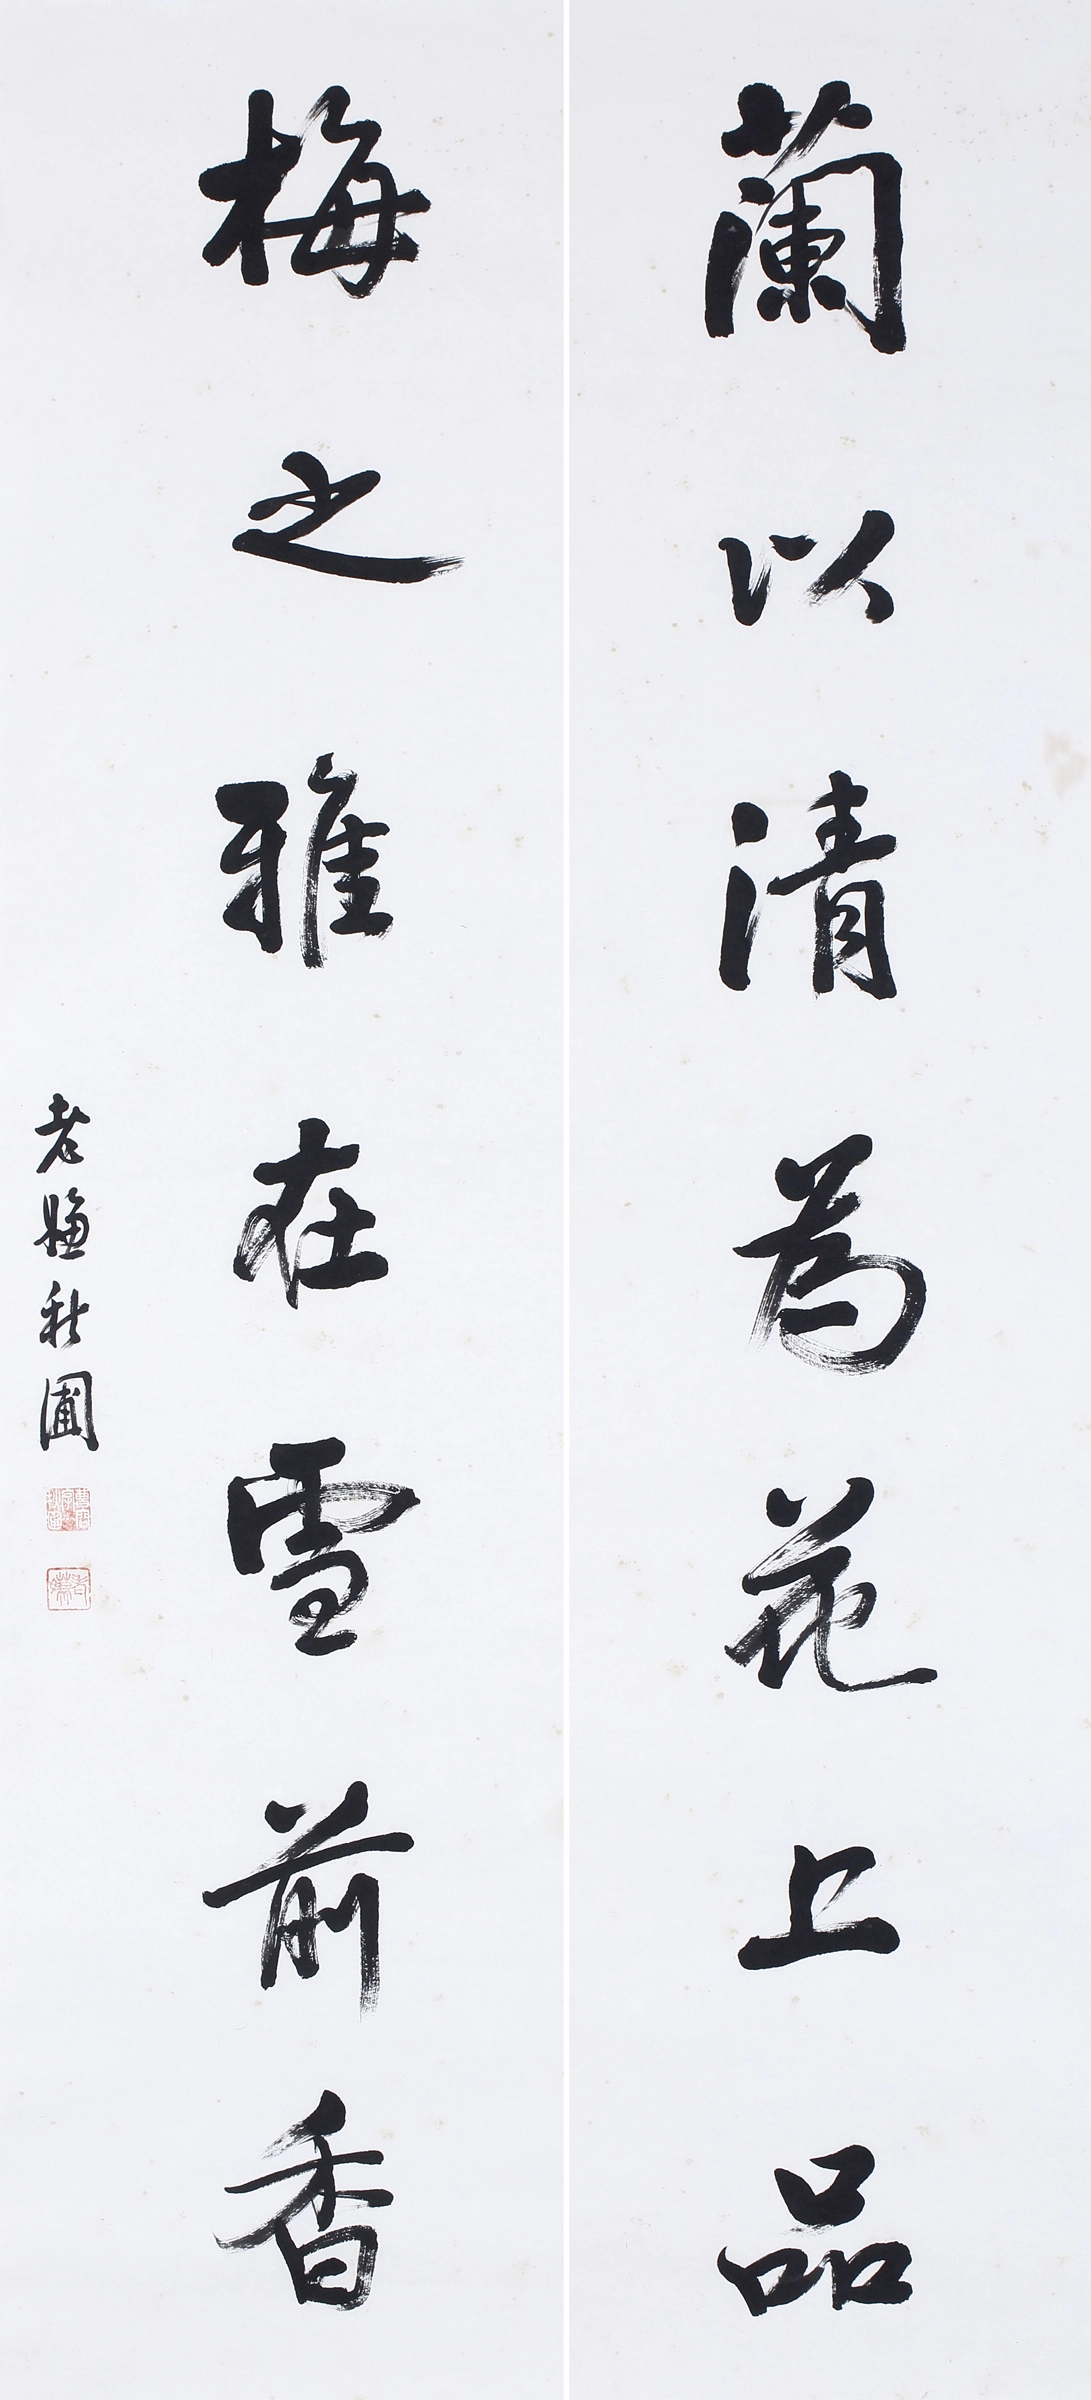 蘭以清為花上品
梅之雅在雪前香
老嫌秋圃
老嫌